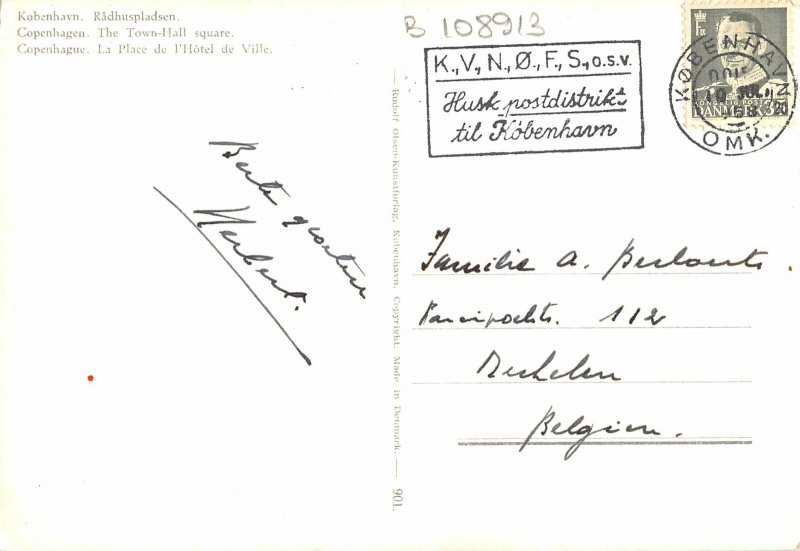 København. Rådhuspladsen.
Copenhagen. The Town-Hall square.
Copenhague. La Place de l'Hôtel de Ville.
B 108913
K., V., N., Ø., F., S., o.s.v.
Husk postdistrikt
til København
KØBENHAVN
OMK.
DANMARK
Beste groeten
Herbert.
Familie A. Berlaerts
112
Mechelen
Belgien.
— Rudolf Olsen-Kunstforlag, København. Copyright. Made in Denmark. — 901.